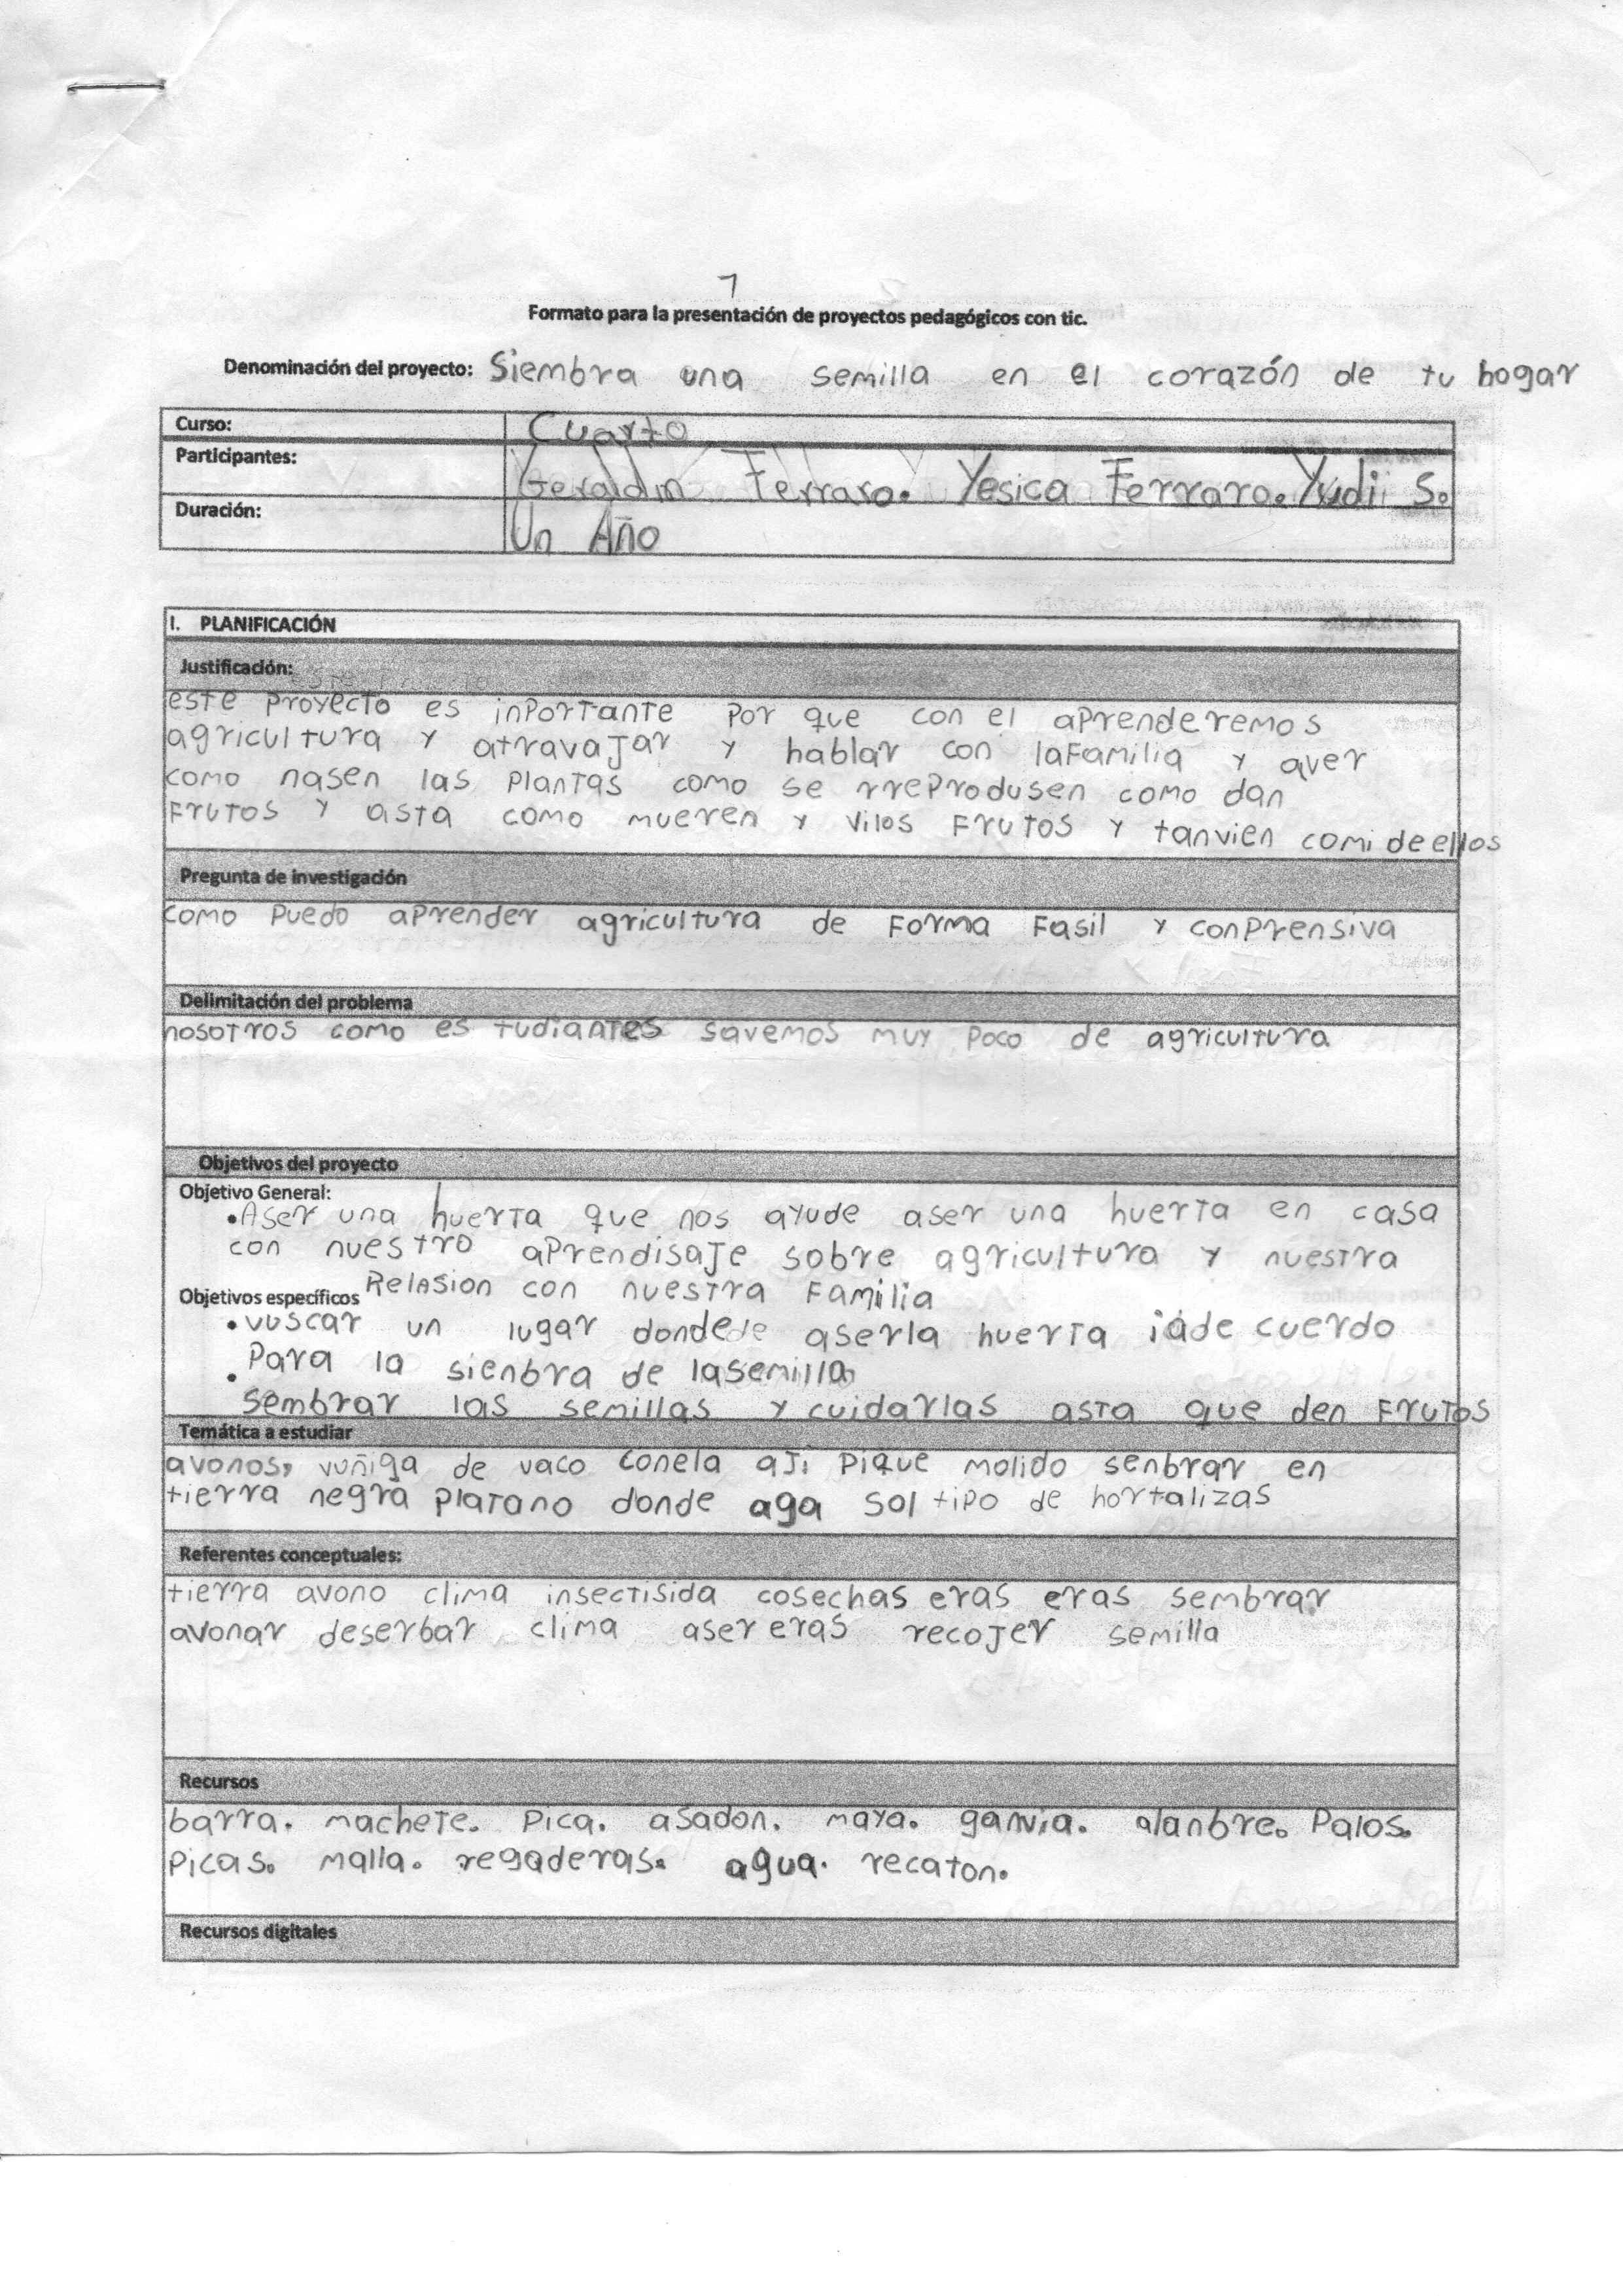 7
Formato para la presentación de proyectos pedagógicos con tic.
Denominación del proyecto: Siembra una semilla en el corazón de tu hogar
Curso: Cuarto
Participantes: Geraldin Ferraro. Yesica Ferraro. Yudi S.
Duración: Un Año
I. PLANIFICACIÓN
Justificación:
este Proyecto es inPortante Por que con el aPrenderemos
agricultura y atravajar y hablar con lafamilia y aver
como nasen las Plantas como se rreProdusen como dan
Frutos y asta como mueren y vilos Frutos y tanvien comi deellos
Pregunta de investigación
como Puedo aPrender agricultura de Forma Fasil y conPrensiva
Delimitación del problema
nosotros como es tudiantes savemos muy Poco de agricultura
Objetivos del proyecto
Objetivo General:
•Aser una huerta que nos ayude aser una huerta en casa
con nuestro aPrendisaje sobre agricultura y nuestra
Relasion con nuestra Familia
Objetivos específicos
•vuscar un lugar dondede aserla huerta iade cuerdo
Para la sienbra de lasemilla
• sembrar las semillas y cuidarlas asta que den Frutos
Temática a estudiar
avonos, vuñiga de vaco conela aji Pique molido senbrar en
tierra negra Platano donde aga sol tipo de hortalizas
Referentes conceptuales:
tierra avono clima insectisida cosechas eras eras sembrar
avonar deserbar clima aser eras recojer semilla
Recursos
barra. machete. Pica. asadon. maya. garvia. alanbre. Palos.
Picas. malla. regaderas. agua. recaton.
Recursos digitales